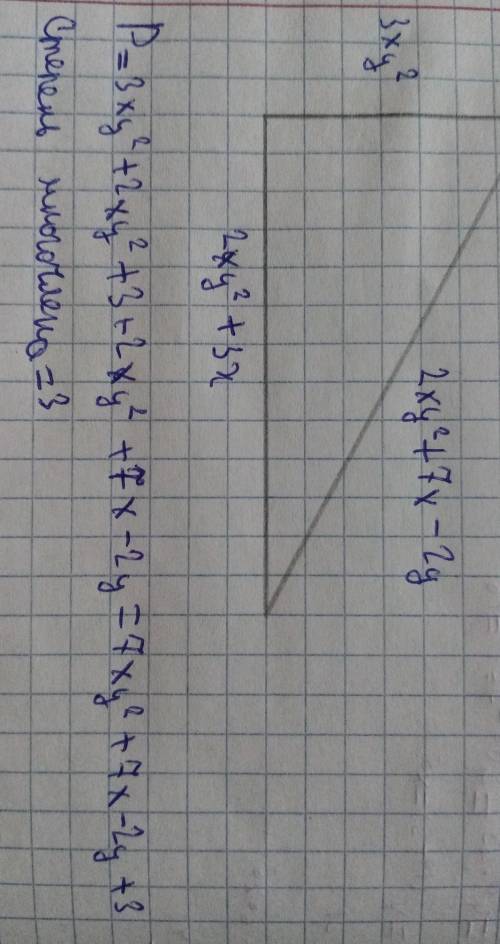 3xy²
2xy² + 7x - 2y
2xy² + 3x
P = 3xy² + 2xy² + 3 + 2xy² + 7x - 2y = 7xy² + 7x - 2y + 3
Степень многочлена = 3